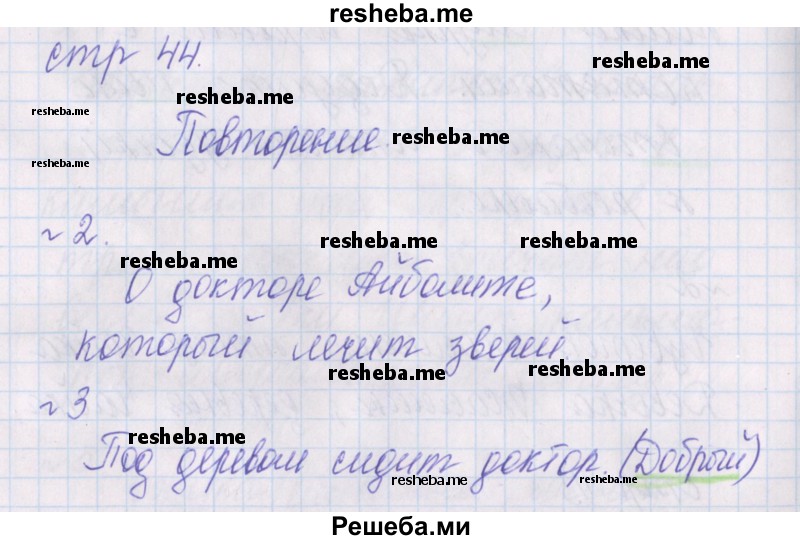 resheba.me
стр 44.
resheba.me
resheba.me
resheba.me
Повторение.
resheba.me
resheba.me
№ 2.
resheba.me
resheba.me
resheba.me
О докторе Айболите,
который лечит зверей.
resheba.me
resheba.me
№ 3
resheba.me
Под деревом сидит доктор. (Добрый)
resheba.me
resheba.me
Решеба.ми